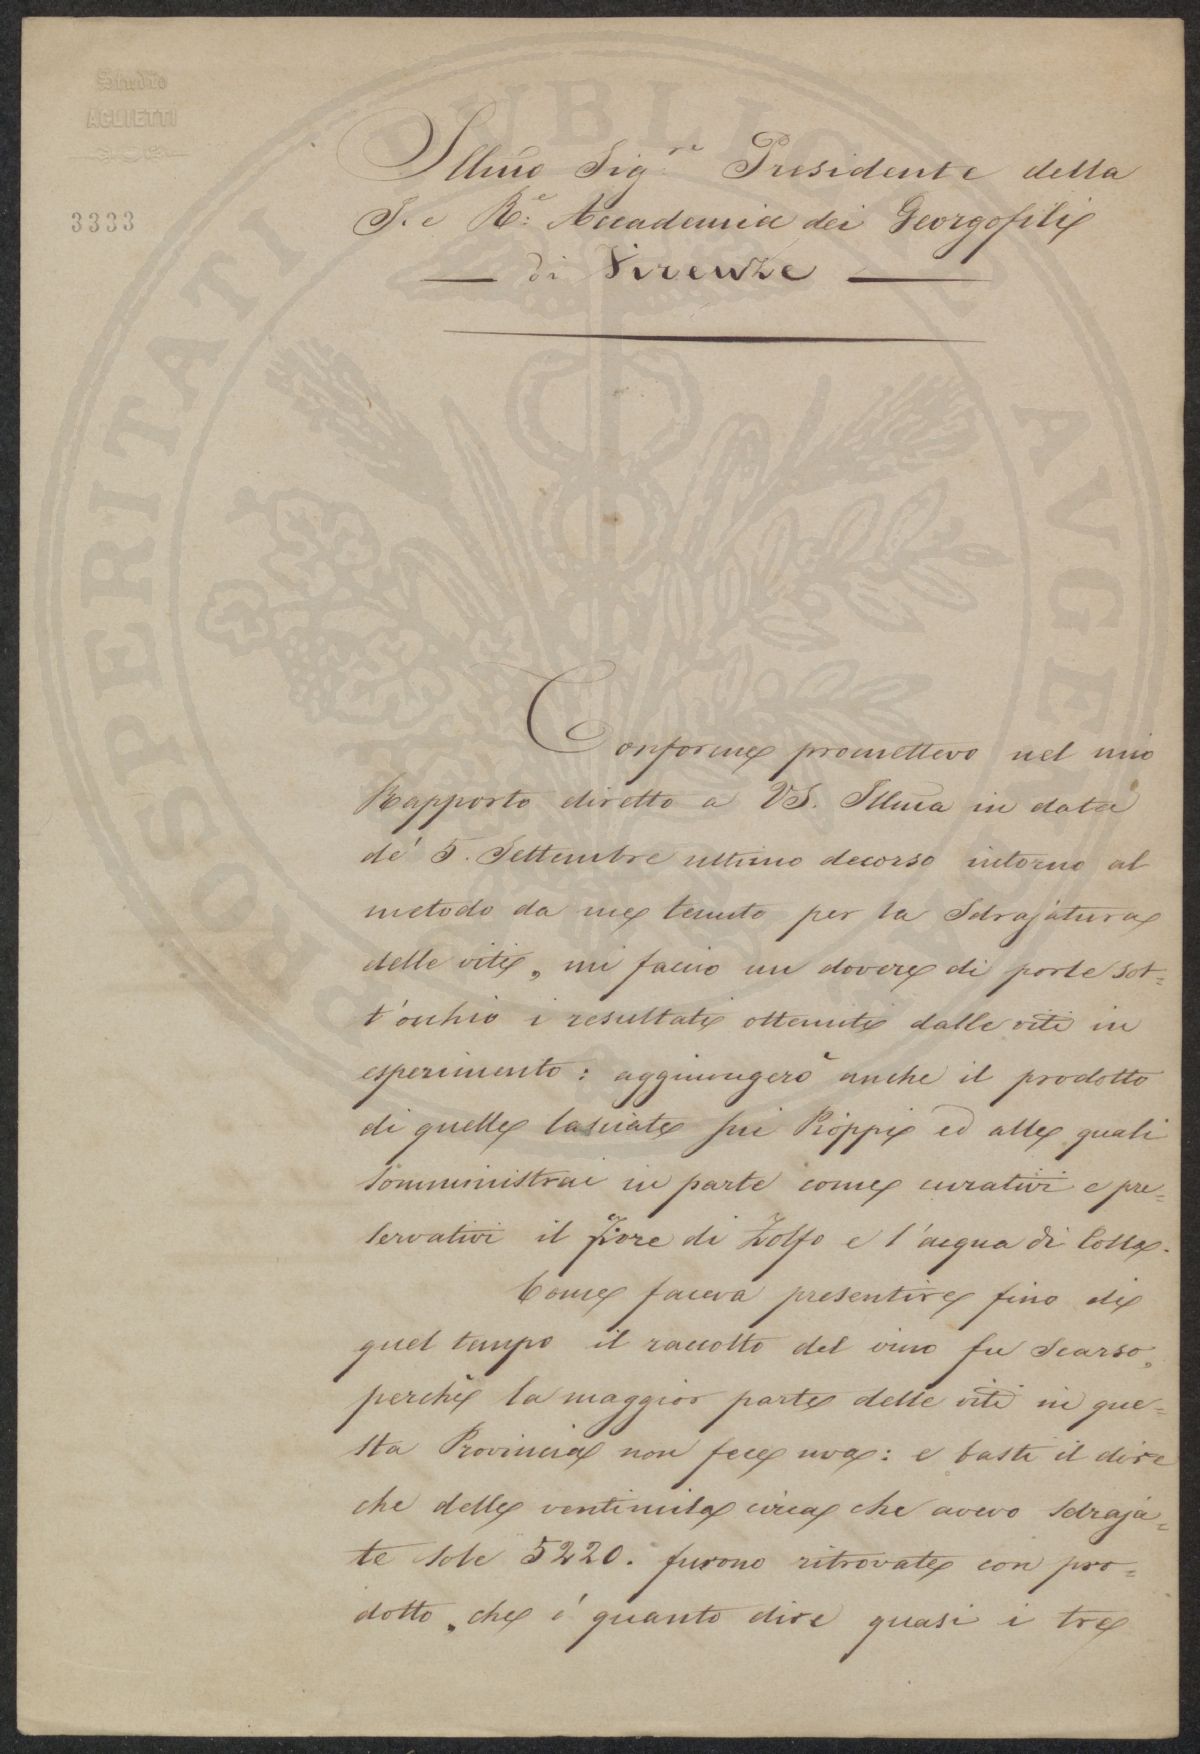 Studio
AGLIETTI
3333
Illmo Sigre Presidente della
I. e R.e Accademia dei Georgofili
di Firenze
Conforme promettevo nel mio
Rapporto diretto a VS. Illma in data
de' 5. Settembre ultimo decorso intorno al
metodo da me tenuto per la Sdrajatura
delle viti, mi facio un dovere di porle sot=
t'occhio i resultati ottenuti dalle viti in
esperimento: aggiungerò anche il prodotto
di quelle lasciate sui Pioppi ed alle quali
somministrai in parte come curativi e pre=
servativi il Fiore di Zolfo e l'acqua di Colla.
Come faceva presentire fino di
quel tempo il raccolto del vino fu scarso,
perchè la maggior parte delle viti in que=
sta Provincia non fece uva: e basti il dire
che delle ventimila circa che avevo sdraja=
te sole 5220. furono ritrovate con pro=
dotto, che é quanto dire quasi i tre
PROSPERITATI PUBLICAE AVGENDAE